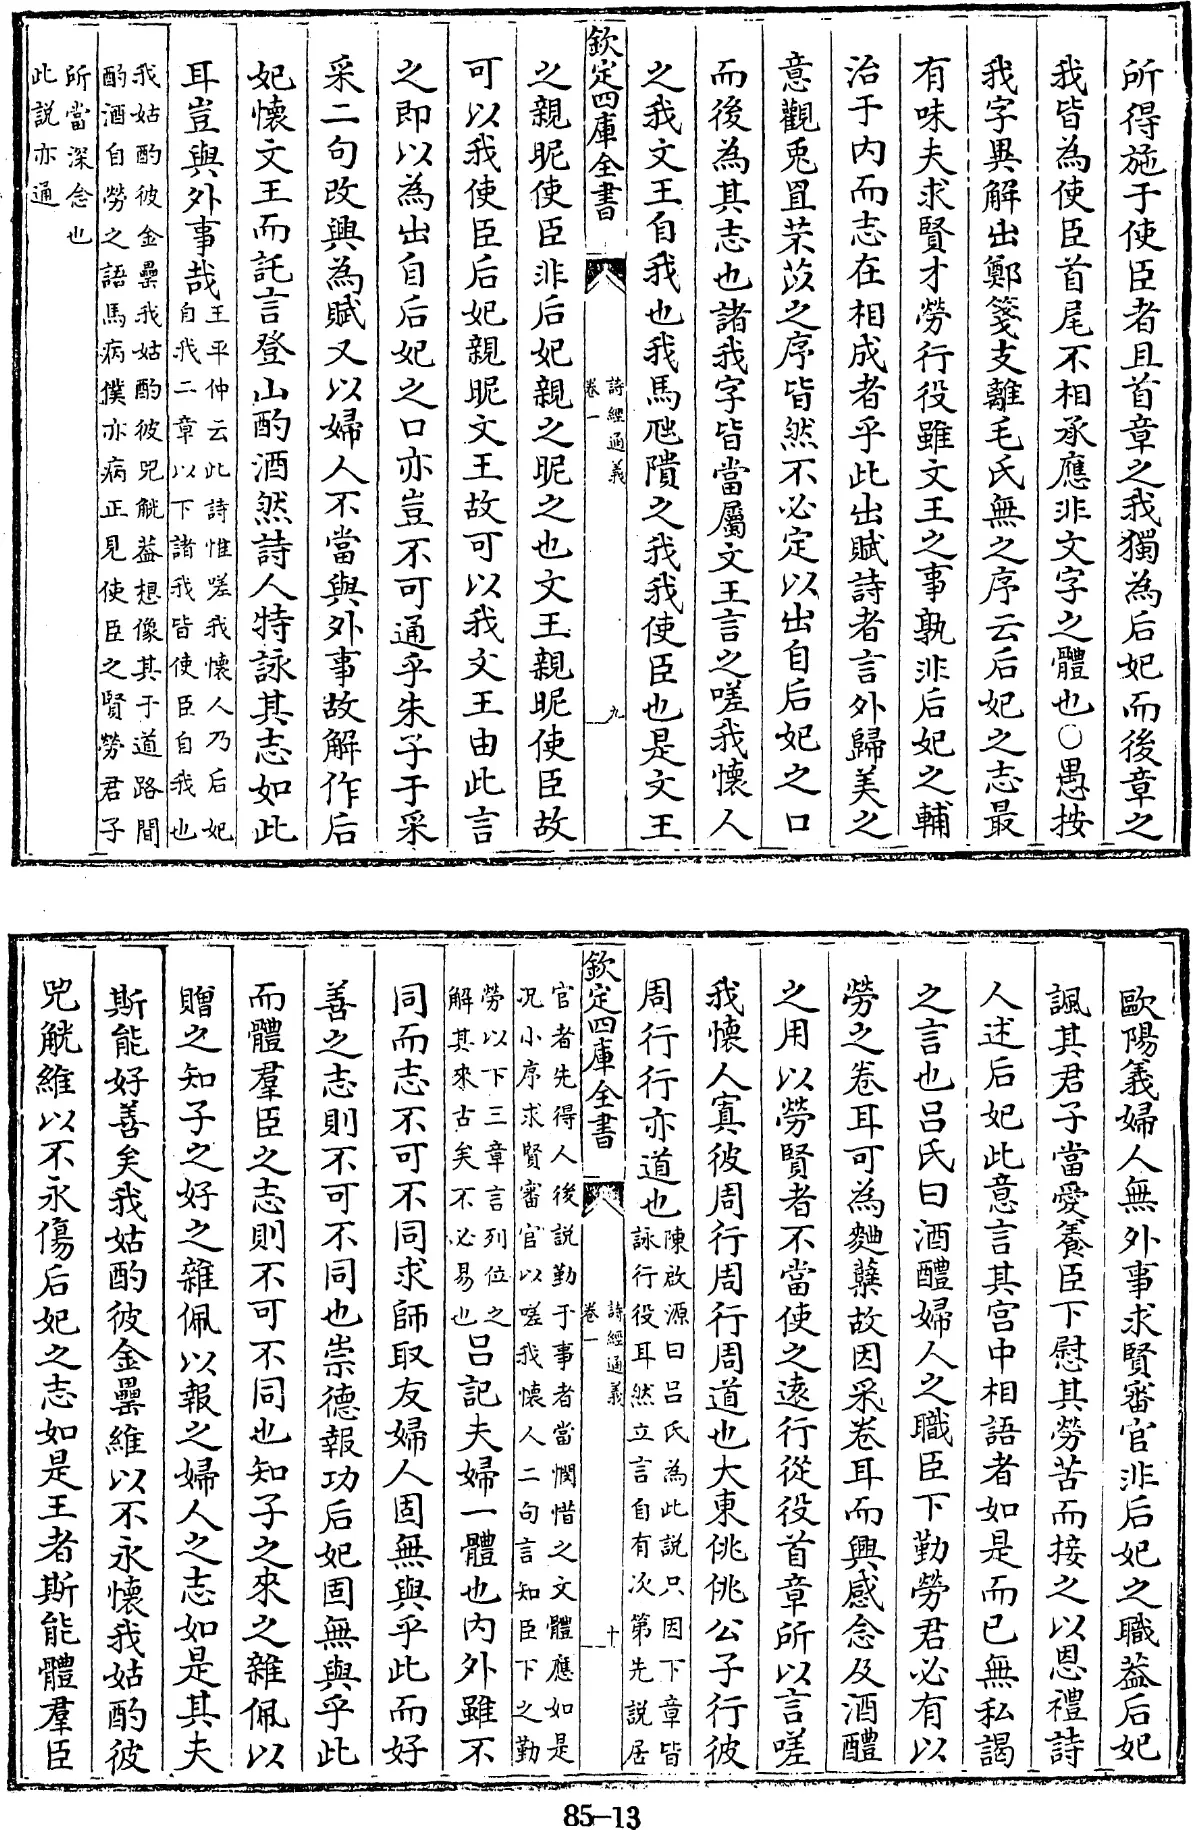 所得施于使臣者且首章之我獨為后妃而後章之
我皆為使臣首尾不相承應非文字之體也○愚按
我字異解出鄭箋支離毛氏無之序云后妃之志最
有味夫求賢才勞行役雖文王之事孰非后妃之輔
治于内而志在相成者乎此出賦詩者言外歸美之
意觀兎罝芣苡之序皆然不必定以出自后妃之口
而後為其志也諸我字皆當屬文王言之嗟我懷人
之我文王自我也我馬虺隤之我我使臣也是文王
欽定四庫全書
詩經通義
卷一
九
之親昵使臣非后妃親之昵之也文王親昵使臣故
可以我使臣后妃親昵文王故可以我文王由此言
之即以為出自后妃之口亦豈不可通乎朱子于采
采二句改興為賦又以婦人不當與外事故解作后
妃懷文王而託言登山酌酒然詩人特詠其志如此
耳豈與外事哉
王平仲云此詩惟嗟我懷人乃后妃
自我二章以下諸我皆使臣自我也
我姑酌彼金罍我姑酌彼兕觥葢想像其于道路間
酌酒自勞之語馬病僕亦病正見使臣之賢勞君子
所當深念也
此説亦通
歐陽義婦人無外事求賢審官非后妃之職葢后妃
諷其君子當愛養臣下慰其勞苦而接之以恩禮詩
人述后妃此意言其宮中相語者如是而已無私謁
之言也吕氏曰酒醴婦人之職臣下勤勞君必有以
勞之卷耳可為麯糵故因采卷耳而興感念及酒醴
之用以勞賢者不當使之遠行從役首章所以言嗟
我懷人寘彼周行周行周道也大東佻佻公子行彼
周行行亦道也
陳啟源曰吕氏為此説只因下章皆
詠行役耳然立言自有次第先説居
欽定四庫全書
詩經通義
卷一
十
官者先得人後説勤于事者當憫惜之文體應如是
况小序求賢審官以嗟我懷人二句言知臣下之勤
勞以下三章言列位之
解其來古矣不必易也
吕記夫婦一體也内外雖不
同而志不可不同求師取友婦人固無與乎此而好
善之志則不可不同也崇德報功后妃固無與乎此
而體羣臣之志則不可不同也知子之來之雜佩以
贈之知子之好之雜佩以報之婦人之志如是其夫
斯能好善矣我姑酌彼金罍維以不永懷我姑酌彼
兕觥維以不永傷后妃之志如是王者斯能體羣臣
85-13